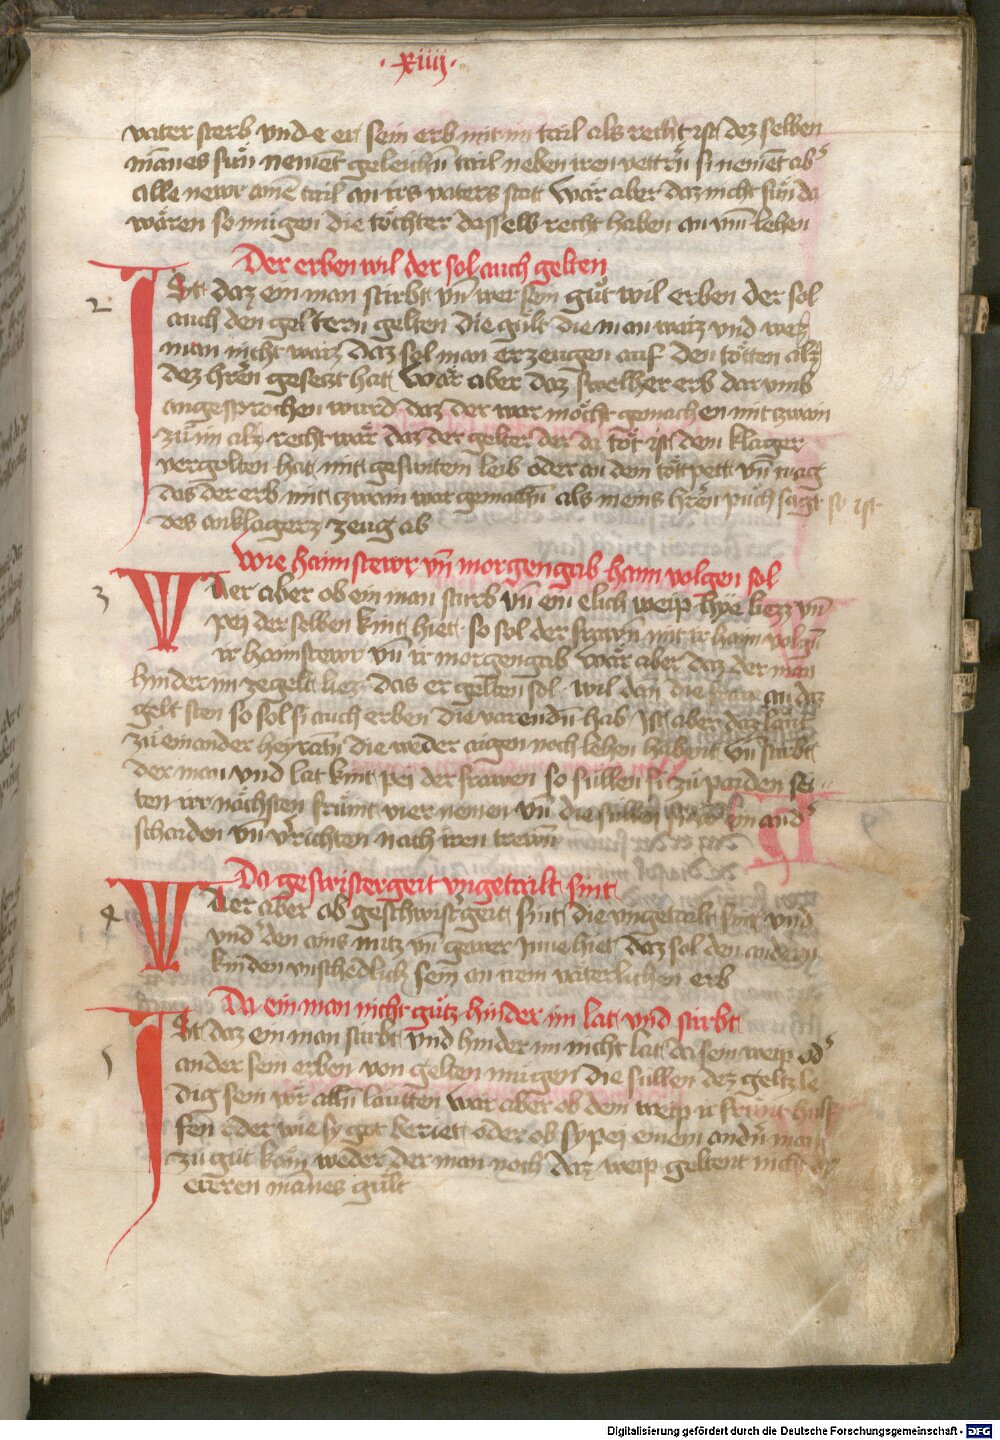 ·xiiij·
vater sterb vnd e er sein erb mit im tail als recht ist dez selben
mānes sün nement geleichn̄ tail neben iren vettrn̄ si nement ab̾
alle newr ainē tail an irs vaters stat Wär aber daz nicht sün da
wären so mügen die töchter dasselb recht haben an vnn̄ lehen
Der erben wil der sol auch gelten
2
Ist daz ein man stirbt vn̄ wer sein guͦt wil erben der sol
auch den geltern gelten die gült die man waiz vnd wez
man nicht waiz daz sol man erzeugen auf den totten alz
dez hrēn gesetzt hat Wär aber daz swelher erb darvmb
angesprochen wurd daz der war möcht gemachen mit zwain
zuͦ im alz recht wär daz der gelter der da tot ist dem klager
vergolten hat mit gesuntem leib oder an dem totpett vn̄ mag
das der erb mit zwain war gemachn̄ als meins hrēn puͦch sagt so ist
des anklagerz zeug ab
Wie haimstewr vn̄ morgengab haim volgen sol
3
Wer aber ob ein man starb vn̄ ein elich weip hye liezz vn̄
pei der selben kint hiet so sol der frawn̄ mit ir haim volgn̄
ir haimstewr vn̄ ir morgengab Wär aber daz der man
hinder im zegelt liez das er gelten sol wil dan̄ die fraw an daz
gelt sten so sol si auch erben die varendn̄ hab Ist aber daz läut
zu einander heyratn̄ die weder aigen noch lehen habent vn̄ stirbt
der man vnd lat kint pei der frawen so süllen si zu paiden sei
ten irr nächsten früint vier nemen vn̄ die süllen si von ein and̾
schaiden vn̄ v̾richten nach iren trewn̄
Da geswistergeit vngetailt sint
4
Wer aber ob geschwist̾geit sint die vngetailt sint vnd
vnd̾ den ains nutz vn̄ gewer Inne hiet daz sol den andern
kinden vnschedlich sein an irem väterlichen erb
Da ein man nicht guͦtz hinder im lat vnd stirbt
5
Ist daz ein man stirbt vnd hinder im nicht lat da sein weip od̾
ander sein erben von gelten mügen die süllen dez geltz le
dig sein vor alln̄ läutten Wär aber ob dem weip ir früint hulf
fen oder wie sy got beriet oder ob sy pei einem andn̄ man
zu guͦt käm weder der man noch daz weip geltent nicht
erēren mānes gült
Digitalisierung gefördert durch die Deutsche Forschungsgemeinschaft - DFG